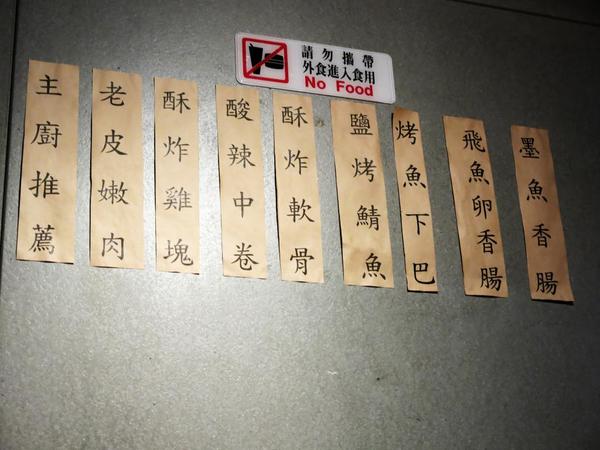 請勿攜帶
外食進入食用
No Food
主廚推薦
老皮嫩肉
酥炸雞塊
酸辣中卷
酥炸軟骨
鹽烤鯖魚
烤魚下巴
飛魚卵香腸
墨魚香腸